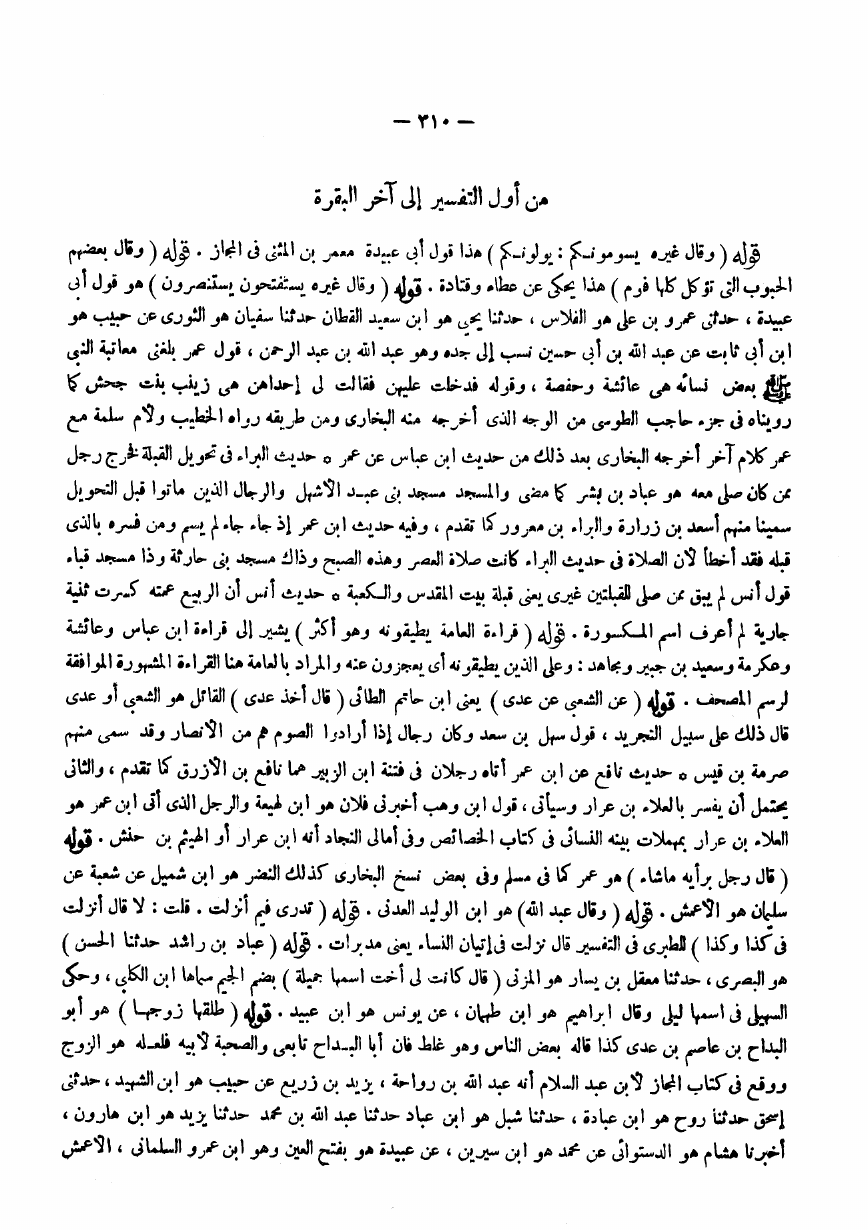 — ٣١٠ —
من أول التفسير إلى آخر البقرة
قوله ( وقال غيره يسومونـكم : يولونـكم ) هذا قول أبى عبيدة معمر بن المثنى فى المجاز . قوله ( وقال بعضهم
الحبوب التى تؤكل كلها فوم ) هذا يحكى عن عطاء وقتادة . قوله ( وقال غيره يستفتحون يستنصرون ) هو قول أبى
عبيدة ، حدثنى عمرو بن على هو الفلاس ، حدثنا يحيى هو ابن سعيد القطان حدثنا سفيان هو الثورى عن حبيب هو
ابن أبى ثابت عن عبد الله بن أبى حسين نسب إلى جده وهو عبد الله بن عبد الرحمن ، قول عمر بلغنى معاتبة النبى
ﷺ بعض نسائه هى عائشة وحفصة ، وقوله فدخلت عليهن فقالت لى إحداهن هى زينب بنت جحش كما
رويناه فى جزء حاجب الطوسى من الوجه الذى أخرجه منه البخارى ومن طريقه رواه الخطيب ولأم سلمة مـع
عمر كلام آخر أخرجه البخارى بعد ذلك من حديث ابن عباس عن عمر * حديث البراء فى تحويل القبلة فخرج رجل
ممن كان صلى معه هو عباد بن بشر كما مضى والمسجد مسجد بنى عبـد الأشهل والرجال الذين ماتوا قبل التحويل
سمينا منهم أسعد بن زرارة والبراء بن معرور كما تقدم ، وفيه حديث ابن عمر إذ جاء جاء لم يسم ومن فسره بالذى
قبله فقد أخطأ لأن الصلاة فى حديث البراء كانت صلاة العصر وهذه الصبح وذاك مسجد بنى حارثة وذا مسجد قباء
قول أنس لم يبق ممن صلى للقبلتين غيرى يعنى قبلة بيت المقدس والـكعبة * حديث أنس أن الربيع عمته كسرت ثنية
جارية لم أعرف اسم المـكسورة . قوله ( قراءة العامة يطيقونه وهو أكثر ) يشير إلى قراءة ابن عباس وعائشة
وعكرمة وسعيد بن جبير ومجاهد : وعلى الذين يطيقونه أى يعجزون عنه والمراد بالعامة هنا القراءة المشهورة الموافقة
لرسم المصحف . قوله ( عن الشعبى عن عدى ) يعنى ابن حاتم الطائى ( قال أخذ عدى ) القائل هو الشعبى أو عدى
قال ذلك على سبيل التجريد ، قول سهل بن سعد وكان رجال إذا أرادوا الصوم هم من الأنصار وقد سمى منهم
صرمة بن قيس * حديث نافع عن ابن عمر أتاه رجلان فى فتنة ابن الزبير هما نافع بن الأزرق كما تقدم ، والثانى
يحتمل أن يفسر بالعلاء بن عرار وسيأتى ، قول ابن وهب أخبرنى فلان هو ابن لهيعة والرجل الذى أتى ابن عمر هو
العلاء بن عرار بمهملات بينه النسائى فى كتاب الخصائص وفى أمالى النجاد أنه ابن عرار أو الهيثم بن حنش . قوله
( قال رجل برأيه ماشاء ) هو عمر كما فى مسلم وفى بعض نسخ البخارى كذلك النضر هو ابن شميل عن شعبة عن
سليمان هو الأعمش . قوله ( وقال عبد الله) هو ابن الوليد العدنى . قوله ( تدرى فيم أنزلت . قلت : لا قال أنزلت
فى كذا وكذا ) للطبرى فى التفسير قال نزلت فى إتيان النساء يعنى مدبرات . قوله ( عباد بن راشد حدثنا الحسن )
هو البصرى ، حدثنا معقل بن يسار هو المزنى ( قال كانت لى أخت اسمها جميلة ) بضم الجيم سماها ابن الكلبى ، وحكى
السهيلى فى اسمها ليلى وقال ابراهيم هو ابن طهمان ، عن يونس هو ابن عبيد . قوله ( طلقها زوجهـا ) هو أبو
البداح بن عاصم بن عدى كذا قاله بعض الناس وهو غلط فان أبا البـداح تابعى والصحبة لأبيه فلعـله هو الزوج
ووقع فى كتاب المجاز لابن عبد السلام أنه عبد الله بن رواحة ، يزيد بن زريع عن حبيب هو ابن الشهيد ، حدثنى
إسحق حدثنا روح هو ابن عبادة ، حدثنا شبل هو ابن عباد حدثنا عبد الله بن محمد حدثنا يزيد هو ابن هارون ،
أخبرنا هشام هو الدستوائى عن محمد هو ابن سيرين ، عن عبيدة هو بفتح العين وهو ابن عمرو السلمانى ، الأعمش